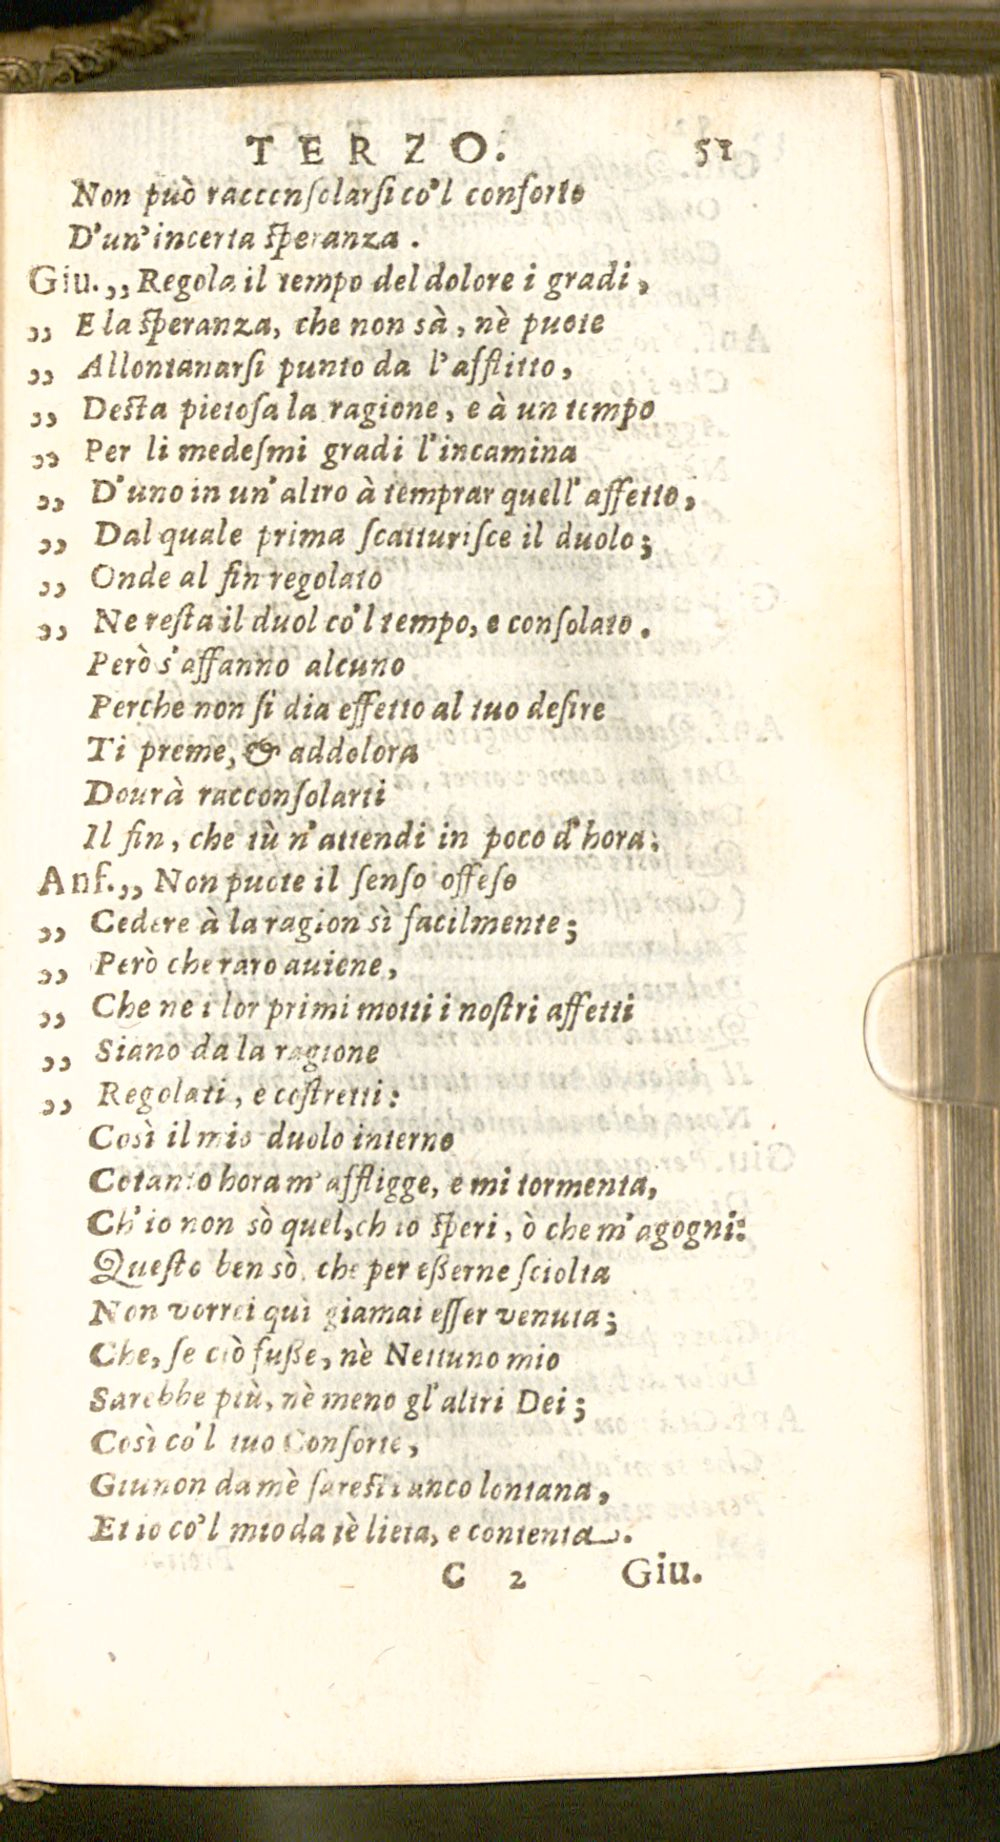 TERZO. 51
Non può racconſolarſi co'l conforto
D'un'incerta ſperanza.
Giu.,, Regola il tempo del dolore i gradi,
,, E la ſperanza, che non sà, nè puote
,, Allontanarſi punto da l'afflitto,
,, Deſta pietoſa la ragione, e à un tempo
,, Per li medeſmi gradi l'incamina
,, D'uno in un'altro à temprar quell'affetto,
,, Dal quale prima ſcatturiſce il duolo;
,, Onde al fin regolato
,, Ne reſta il duol co'l tempo, e conſolato.
Però s'affanno alcuno
Perche non ſi dia effetto al tuo deſire
Ti preme, & addolora
Dourà racconſolarti
Il fin, che tù n'attendi in poco d'hora;
Anf.,, Non puote il ſenſo offeſo
,, Cedere à la ragion sì facilmente;
,, Però che raro auiene,
,, Che ne i lor primi motti i noſtri affetti
,, Siano da la ragione
,, Regolati, e coſtretti:
Così il mio duolo interno
Cotanto hora m'affligge, e mi tormenta,
Ch'io non sò quel, ch io ſperi, ò che m'agogni:
Queſto ben sò, che per eßerne ſciolta
Non vorrei quì giamai eſſer venuta;
Che, ſe ciò fuße, nè Nettuno mio
Sarebbe più, nè meno gl'altri Dei;
Così co'l tuo Conſorte,
Giunon da mè ſareſti anco lontana,
Et io co'l mio da tè lieta, e contenta.
C 2 Giu.